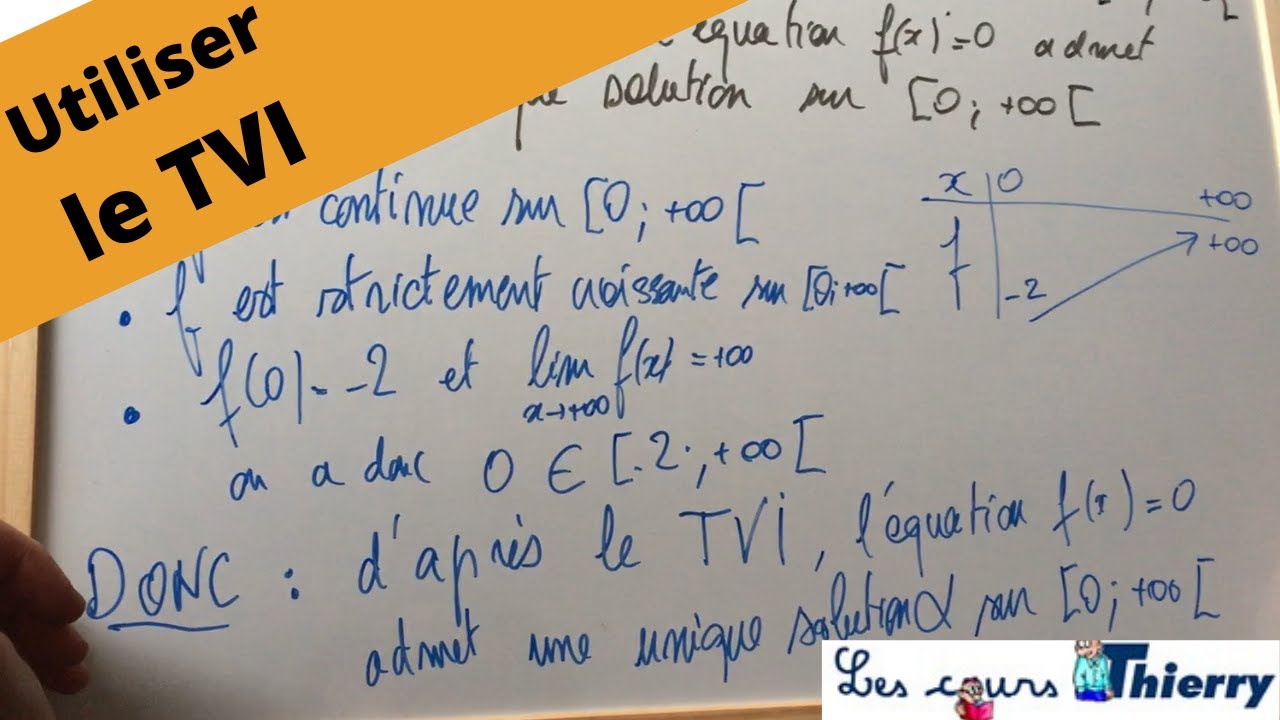 Utiliser
le TVI
l'équation f(x)=0 admet
solution sur [0; +∞[
continue sur [0; +∞[
• f est strictement croissante sur [0; +∞[
• f(0) = -2 et lim f(x) = +∞
x→+∞
on a donc 0 ∈ [-2; +∞[
DONC : d'après le TVI, l'équation f(x)=0
admet une unique solution α sur [0; +∞[
x 0 +∞
f -2 +∞
Les cours Thierry